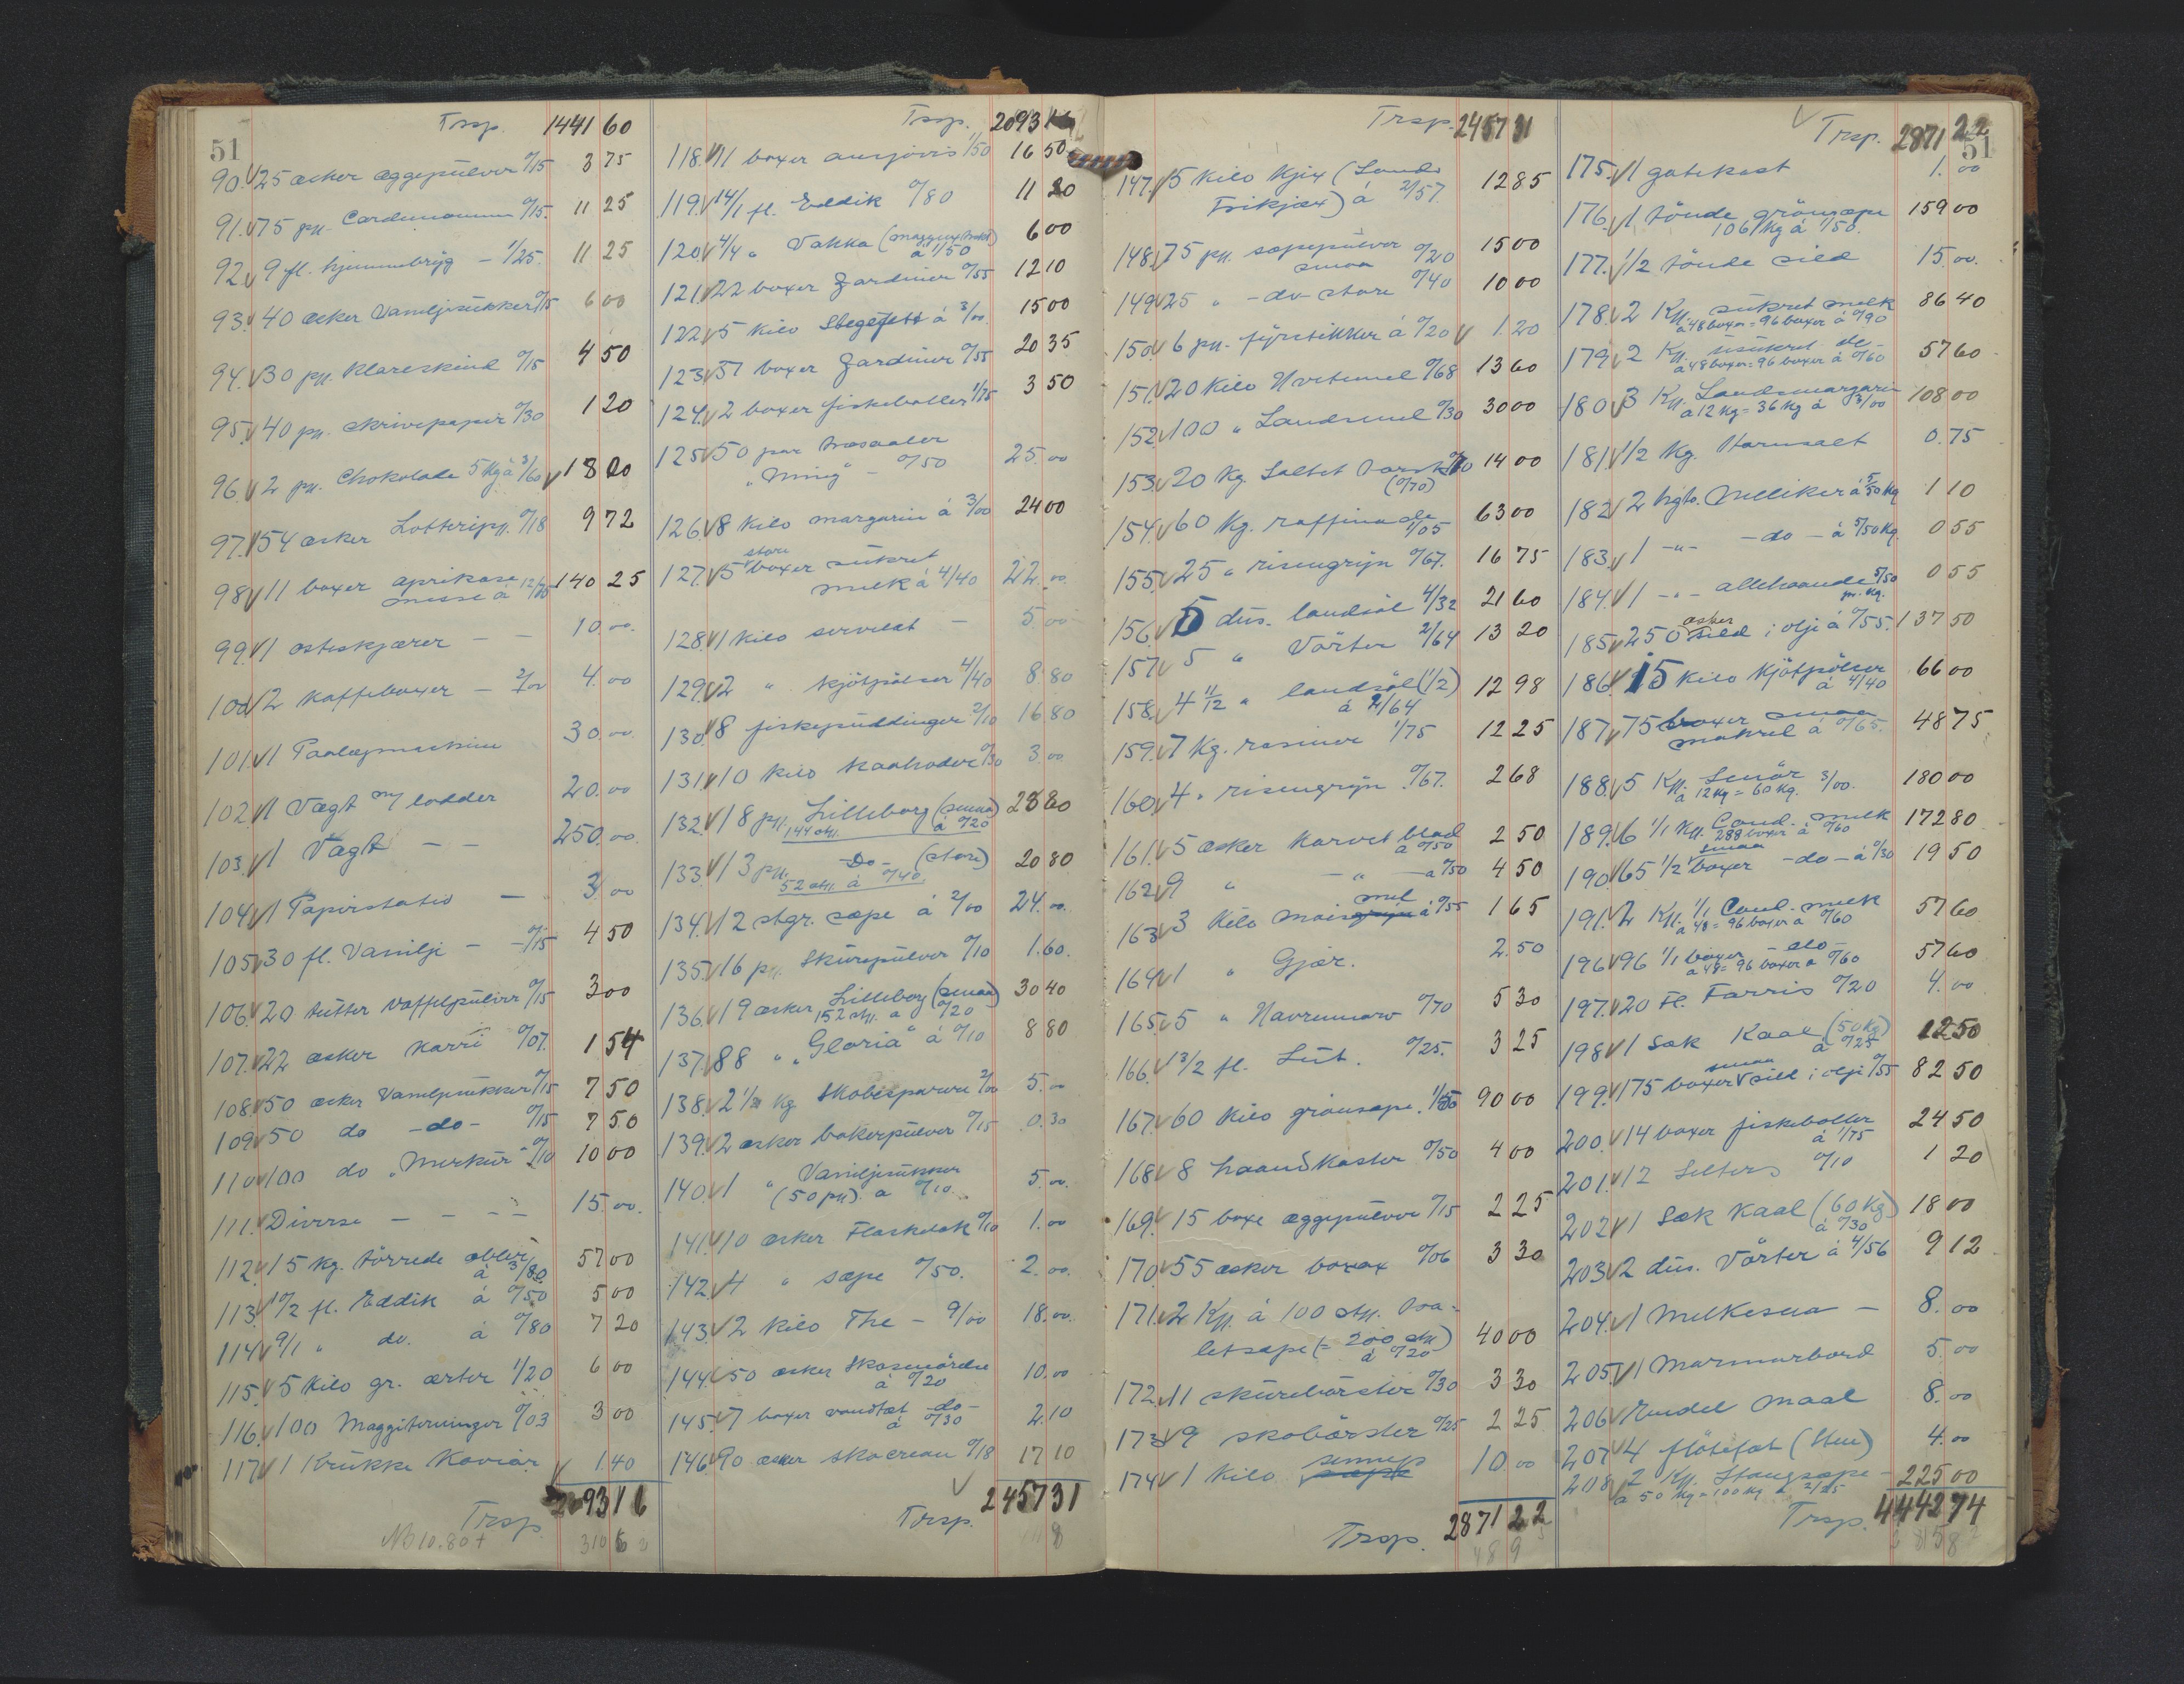 51
Trsp. 1441 60
90. 25 æsker æggepülver 0/15 3 75
91. 75 pk. Cardemomme 0/15. 11 25
92. 9 fl. hjemmebryg - 1/25. 11 25
93. 40 æsker Vaniljesükker 0/15 6 00
94. 30 pk. Klareskind 0/15 4 50
95. 40 pk. skrivepapir 0/30 1 20
96. 2 pk. Chokolade 5 Kg à 3/60 18 00
97. 54 æsker Lotteripk. 0/18 9 72
98. 11 boxer aprikose
messe à 12/75 140 25
99. 1 osteskjærer - - 10.00.
100. 2 Kaffeboxer - 2/00 4.00
101. 1 Paalægmaskine 30.00.
102. 1 Vægt m/ lodder 20.00
103. 1 Vægt - - 250.00.
104. 1 Papirstativ - 3.00
105. 30 fl. Vanilje - 0/15 4 50
106. 20 tutter Vaffelpülver 0/15 3 00
107. 22 æsker Karri 0/07. 1 54
108. 50 æsker Vaniljesükker 0/15 7 50
109. 50 do -do- 0/15 7 50
110. 100 do "Merkur" 0/10 10 00
111. Diverse - - - - 15.00.
112. 15 kg. törrede æbler
à 3/80 57 00
113. 10/2 fl. Eddik à 0/50 5 00
114. 9/1 " do. à 0/80 7 20
115. 5 Kilo gr. ærter 1/20 6 00
116. 100 Maggiterninger 0/03 3 00
117. 1 Krükke Kaviar 1.40
Trsp. 2093 16
No 10.80+ 310
Trsp. 2093 16
118. 11 boxer ansjovis 1/50 16 50
119. 14/1 fl. Eddik 0/80 11 20
120. 4/4 " Vakka
à 1/50 6 00
121. 22 boxer Sardiner 0/55 12 10
122. 5 Kilo Stegefett à 3/00. 15 00
123. 37 boxer Sardiner 0/55 20 35
124. 2 boxer fiskeboller 1/75 3 50
125. 50 par
"Ming" - 0/50 25.00
126. 8 Kilo margarin à 3/00 24 00
127. 5 store boxer sükret
melk à 4/40 22.00
128. 1 Kilo servelat - 5.00
129. 2 " Kjötpölser 4/40 8.80
130. 8 fiskepüddinger 2/10 16 80
131. 10 Kilo Kaalroder 0/30 3.00
132. 18 pk. Lilleborg (smaa)
144 stk. à 0/20 28 80
133. 13 pk. -Do- (store)
52 stk. à 0/40 20 80
134. 12 stgr. sæpe à 2/00 24.00.
135. 16 pk. Skürepülver 0/10 1.60.
136. 19 æsker Lilleborg (smaa)
152 stk. à 0/20 30 40
137. 88 " "Gloria" à 0/10 8 80
138. 2 1/2 kg Skobesparere 2/00 5.00
139. 2 æsker bakerpülver 0/15 0.30
140. 1 " Vaniljesükker
(50 pk) a 0/10. 5.00.
141. 10 æsker Flaskelak 0/10 1.00
142. 4 " sæpe 0/50. 2.00.
143. 2 Kilo The - 9/00 18.00.
144. 50 æsker Skosmörelse
à 0/20 10.00
145. 7 boxer vandtæt -do-
à 0/30 2.10
146. 90 æsker Skocream 0/18 17 10
Trsp. 2457 31
Trsp. 2457 31
147. 5 Kilo Kjix (Lands
Frikjæx) à 2/57 12 85
148. 75 pk. sæpepülver
smaa 0/20 15 00
149. 25 " -do- store 0/40 10 00
150. 6 pk. fyrstikker à 0/20 1.20
151. 20 Kilo Hvetemel 0/68 13 60
152. 100 " Landsmel 0/30 30 00
153. 20 Kg. Saltet torsk
(0/70) 14 00
154. 60 Kg. raffinade
1/05 63 00
155. 25 " risengryn 0/67. 16 75
156. 5 düs. landsöl 4/32 21 60
157. 5 " Vörter 2/64 13 20
158. 4 11/12 " landsöl (1/2)
à 2/64 12 98
159. 7 Kg. rosiner 1/75 12 25
160. 4 " risengryn 0/67. 2 68
161. 5 æsker Karvet blad
à 0/50 2 50
162. 9 " - " - à 0/50 4 50
163. 3 Kilo maisgryn mel à 0/55 1 65
164. 1 " Gjær. 2.50
165. 5 " Havremark 0/70 5 30
166. 13/2 fl. Lüt. 0/25. 3 25
167. 60 Kilo grönsæpe. 1/50 90 00
168. 8 haandkoster 0/50 4 00
169. 15 boxe æggepülver 0/15 2 25
170. 55 æsker borax 0/06 3 30
171. 2 Kp. à 100 stk. toa-
letsæpe (= 200 stk)
à 0/20 40 00
172. 11 skürebörster 0/30 3 30
173. 9 skobörster 0/25 2 25
174. 1 Kilo sæpe sennep 10.00
Trsp. 2871 22
489
51
Trsp. 2871 22
175. 1 gatekost 1.00
176. 1 tönde grönsæpe
106 kg à 1/50. 159 00
177. 1/2 tönde sild 15.00.
178. 2 Kp. sükret melk
à 48 boxer = 96 boxer à 0/90 86 40
179. 2 Kp. üsükret do-
à 48 boxer = 96 boxer à 0/60 57 60
180. 3 Kp. Landsmargarin
à 12 kg = 36 kg à 3/00 108 00
181. 1/2 Kg. Hornsalt 0.75
182. 2 hgto. Nelliker à 5/50 Kg 1 10
183. 1 -"- -do- à 5/50 Kg. 0 55
184. 1 -"- allehaande 5/50
pr. kg. 0 55
185. 250 æsker sild i olje à 0/55. 137 50
186. 15 Kilo Kjötpölser
à 4/40 66 00
187. 75 boxer smaa
makrel à 0/65. 48 75
188. 5 Kp. Smör
à 12 kg = 60 kg. 3/00. 180 00
189. 6 1/1 Kp. Cond. melk
288 boxer à 0/60 172 80
190. 65 1/2 smaa boxer -do- à 0/30 19 50
191. 2 Kp. 1/1 Cond. melk
à 48 = 96 boxer à 0/60 57 60
196. 96 1/1 boxer -do-
à 48 = 96 boxer à 0/60 57 60
197. 20 Fl. Farris 0/20 4.00
198. 1 Sæk Kaal (50 Kg)
à 0/25 12 50
199. 175 boxer smaa sild i olje 0/55 82 50
200. 14 boxer fiskeboller
à 1/75 24 50
201. 12 Selters 0/10 1 20
202. 1 Sæk Kaal (60 Kg)
à 0/30 18 00
203. 2 düs. Vörter à 4/56 9 12
204. 1 Melkesua - 8.00
205. 1 Marmorbord 5.00
206. Endel maal 8.00
207. 4 flötefat (Stue) 4.00
208. 2 Kp. Stangsæpe -
à 50 kg = 100 kg à 2/25 225 00
Trsp. 4442 74